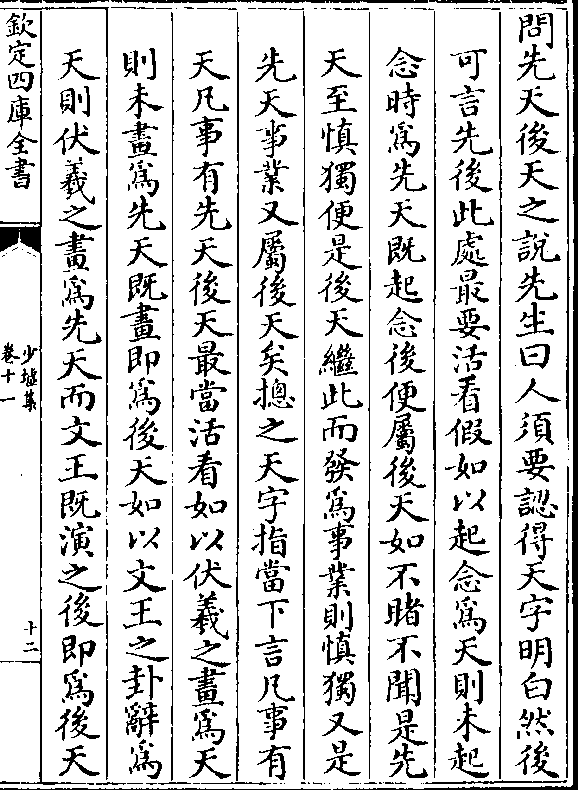 問先天後天之說先生曰人須要認得天字明白然後
可言先後此處最要活看假如以起念爲天則未起
念時爲先天既起念後便屬後天如不睹不聞是先
天至慎獨便是後天繼此而發爲事業則慎獨又是
先天事業又屬後天矣摠之天字指當下言凡事有
天凡事有先天後天最當活看如以伏羲之畫爲天
則未畫爲先天既畫即爲後天如以文王之卦辭爲
天則伏羲之畫爲先天而文王既演之後即爲後天
欽定四庫全書
少墟集
卷十一
十二